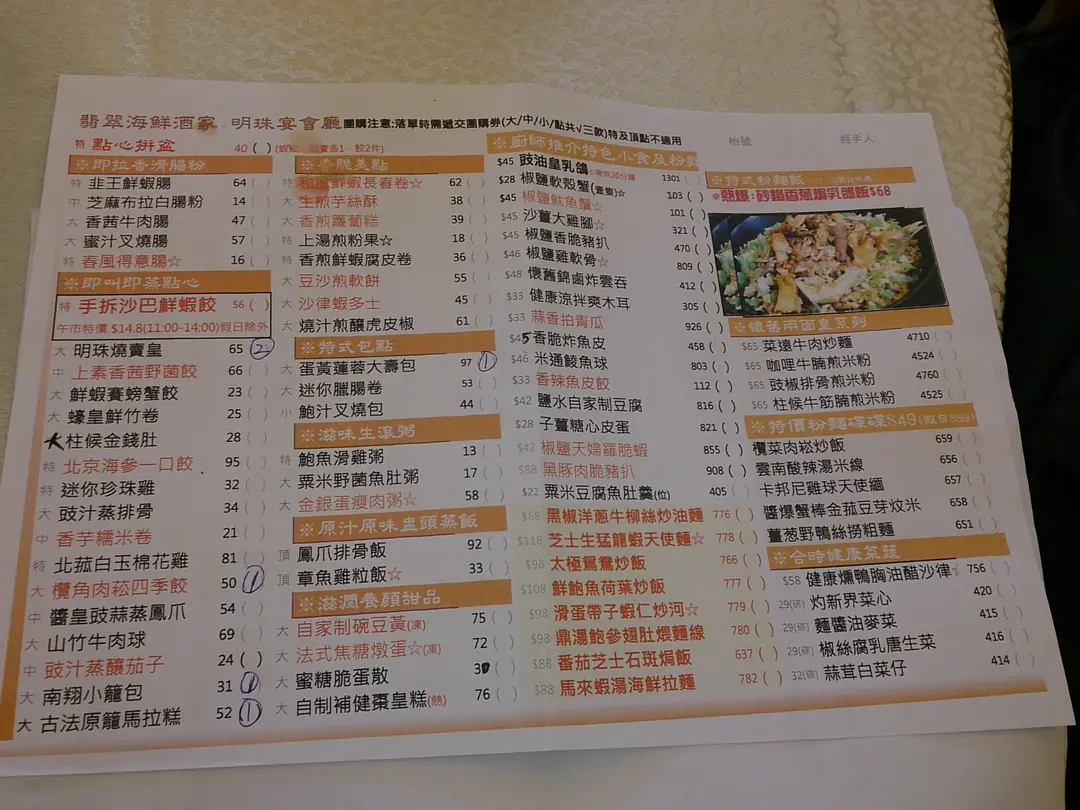 翡翠海鮮酒家 明珠宴會廳 團購注意:落單時需遞交團購券(大/中/小/點共√三款)特及頂點不適用
枱號: 經手人:
特 點心拼盆 40 ( )
※即拉香滑腸粉
特 韭王鮮蝦腸 64 ( )
中 芝麻布拉白腸粉 14 ( )
大 香茜牛肉腸 47 ( )
大 蜜汁叉燒腸 57 ( )
特 春風得意腸☆ 16 ( )
※即叫即蒸點心
特 手拆沙巴鮮蝦餃 56 ( )
午市特價 $14.8(11:00-14:00)假日除外
大 明珠燒賣皇 65 (2)
中 上素香茜野菌餃 66 ( )
大 鮮蝦賽螃蟹餃 23 ( )
大 蠔皇鮮竹卷 25 ( )
大 柱候金錢肚 28 ( )
特 北京海參一口餃 95 ( )
特 迷你珍珠雞 32 ( )
大 豉汁蒸排骨 34 ( )
中 香芋糯米卷 21 ( )
特 北菰白玉棉花雞 81 ( )
大 欖角肉崧四季餃 50 (1)
中 醬皇豉蒜蒸鳳爪 54 ( )
大 山竹牛肉球 69 ( )
中 豉汁蒸釀茄子 24 ( )
大 南翔小籠包 31 (1)
大 古法原籠馬拉糕 52 (1)
美點
特 和風鮮蝦長春卷☆ 62 ( )
大 生煎芋絲酥 38 ( )
大 香煎蘿蔔糕 39 ( )
特 上湯煎粉果☆ 18 ( )
特 香煎鮮蝦腐皮卷 36 ( )
大 豆沙煎軟餅 55 ( )
大 沙律蝦多士 45 ( )
大 燒汁煎釀虎皮椒 61 ( )
※特式包點
大 蛋黃蓮蓉大壽包 97 (1)
大 迷你臘腸卷 53 ( )
小 鮑汁叉燒包 44 ( )
※滋味生滾粥
特 鮑魚滑雞粥 13 ( )
大 粟米野菌魚肚粥 17 ( )
大 金銀蛋瘦肉粥☆ 58 ( )
※原汁原味盅頭蒸飯
頂 鳳爪排骨飯 92 ( )
頂 章魚雞粒飯☆ 33 ( )
※滋潤養顏甜品
大 自家制碗豆黃(凍) 75 ( )
大 法式焦糖燉蛋☆(凍) 72 ( )
大 蜜糖脆蛋散 30 ( )
大 自制補健棗皇糕(熱) 76 ( )
※廚師推介特色小食及粉麵
$45 豉油皇乳鴿 1301 ( )
$28 椒鹽軟殼蟹(壹隻)☆ 103 ( )
$45 椒鹽魷魚鬚☆ 101 ( )
$45 沙薑大雞腳☆ 321 ( )
$45 椒鹽香脆豬扒 470 ( )
$46 椒鹽雞軟骨☆ 809 ( )
$48 懷舊錦鹵炸雲吞 412 ( )
$33 健康涼拌爽木耳 305 ( )
$33 蒜香拍青瓜 926 ( )
$45 香脆炸魚皮 458 ( )
$46 米通鯪魚球 803 ( )
$33 香辣魚皮餃 112 ( )
$42 鹽水自家制豆腐 816 ( )
$28 子薑糖心皮蛋 821 ( )
$42 椒鹽天婦羅脆蝦 855 ( )
$88 黑豚肉脆豬扒 908 ( )
$22 粟米豆腐魚肚羹(位) 405 ( )
$68 黑椒洋蔥牛柳絲炒油麵 776 ( )
$118 芝士生猛龍蝦天使麵☆ 778 ( )
$98 太極鴛鴦炒飯 766 ( )
$108 鮮鮑魚荷葉炒飯 777 ( )
$98 滑蛋帶子蝦仁炒河☆ 779 ( )
$98 鼎湯鮑參翅肚煨麵線 780 ( )
$88 番茄芝士石斑焗飯 637 ( )
$88 馬來蝦湯海鮮拉麵 782 ( )
※特式粉麵飯
※熱爆:砂鍋香蔥爆乳鴿飯$68
※懷舊兩面皇系列
$65 菜遠牛肉炒麵 4710 ( )
$65 咖哩牛腩煎米粉 4524 ( )
$65 豉椒排骨煎米粉 4760 ( )
$65 柱候牛筋腩煎米粉 4525 ( )
※特價粉麵碟碟$49(假日$59)
欖菜肉崧炒飯 659 ( )
雲南酸辣湯米線 656 ( )
卡邦尼雞球天使緬 657 ( )
醬爆蟹棒金菰豆芽炆米 658 ( )
薑葱野鴨絲撈粗麵 651 ( )
※合時健康菜蔬
$58 健康燻鴨胸油醋沙律☆ 756 ( )
29(碟) 灼新界菜心 420 ( )
29(碟) 麵醬油麥菜 415 ( )
29(碟) 椒絲腐乳唐生菜 416 ( )
32(碟) 蒜茸白菜仔 414 ( )